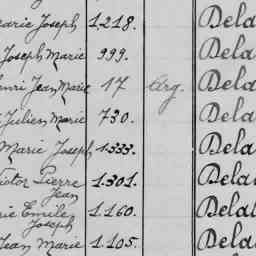 arie Joseph 1.218. Dela
Joseph Marie 999. Dela
enri Jean Marie 17 Arg. Dela
Julien Marie 730. Dela
Marie Joseph 1.333. Dela
ictor Pierre 1.301. Dela
Jean
rie Emile 1.160. Dela
Joseph
Jean Marie 1.105. Dela